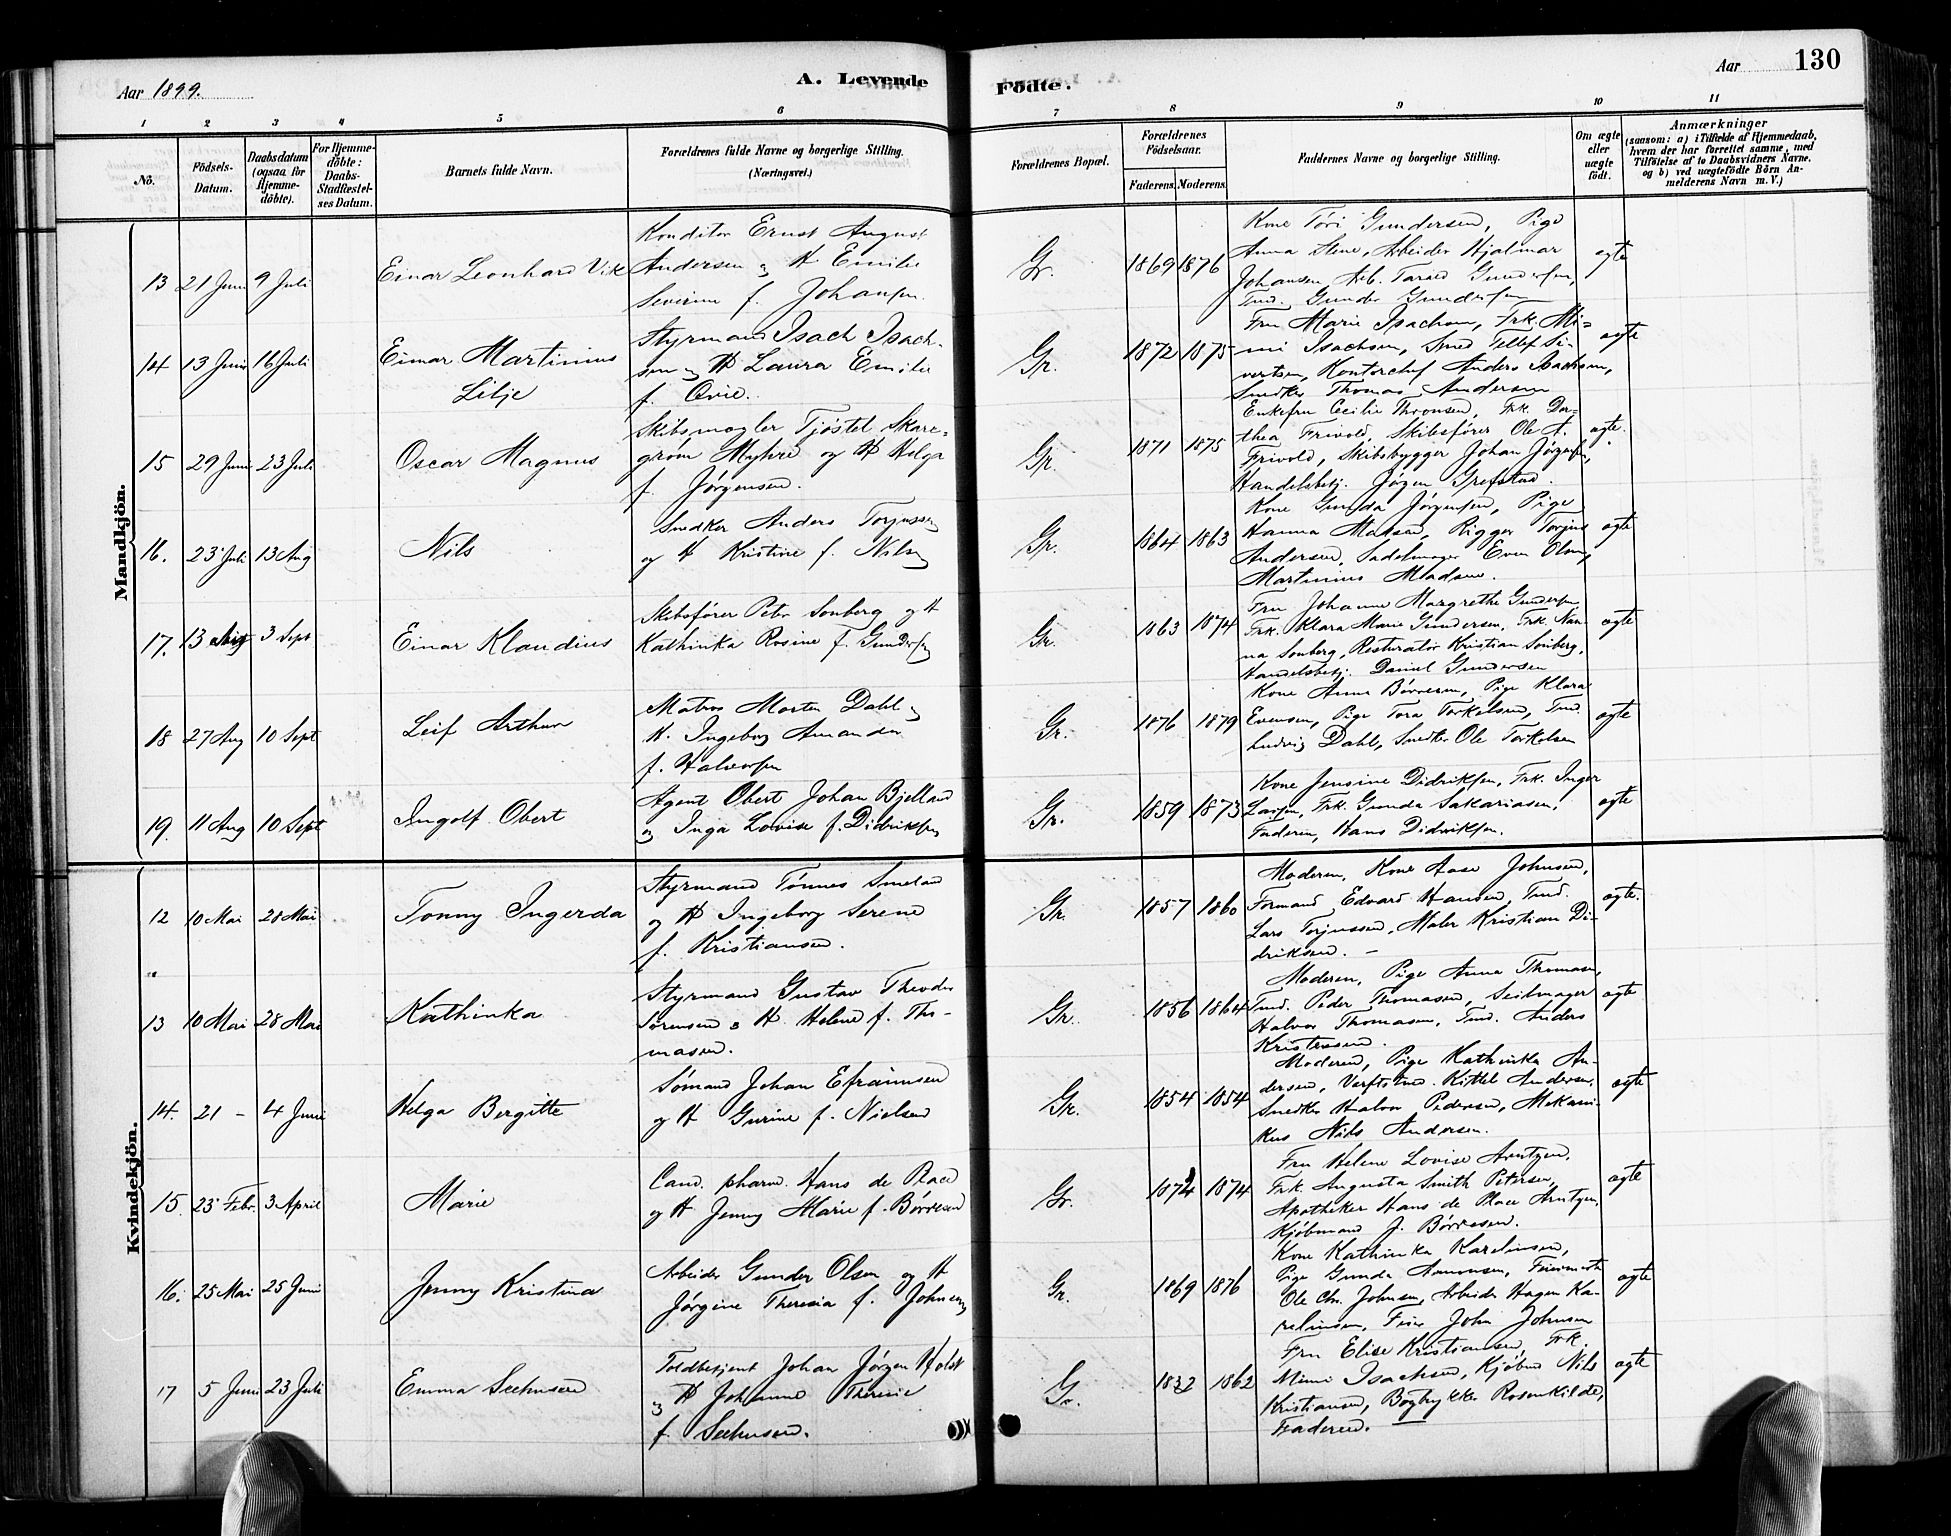 Aar 1899.
A. Levende
Födte.
Aar
130
1 2 3 4 5 6 7 8 9 10 11
No.
Födsels-
Datum.
Daabsdatum
(ogsaa for
Hjemme-
döbte).
For Hjemme-
döbte:
Daabs-
Stadfæstel-
ses Datum.
Barnets fulde Navn.
Forældrenes fulde Navne og borgerlige Stilling.
(Næringsvei.)
Forældrenes Bopæl.
Forældrenes
Födselsaar.
Faderens. Moderens.
Faddernes Navne og borgerlige Stilling.
Om ægte
eller
uægte
födt.
Anmærkninger
(saasom: a) i Tilfælde af Hjemmedaab,
hvem der har forrettet samme, med
Tilföielse af to Daabsvidners Navne.
og b) ved uægtefödte Börn An-
melderens Navn m. V.)
Mandkjön.
13 21 Juni 9 Juli
Einar Leonhard Vik
Konditor Ernst August
Andersen og H Emilie
Severine f. Johansen.
Gr. 1869 1876
Kone Tóri Gundersen, Pige
Anna Stene, Arbeider Hjalmar
Johansen, Arb. Tarald Gundersen,
Tmd. Gunder Gundersen
ægte
14 13 Juni 16 Juli
Einar Martinius
Lilje
Styrmand Isach Isach-
sen og H Laura Emilie
f. Qvie.
Gr. 1872 1875
Fru Marie Isachsen, Frk. Mi-
mi Isachsen, Smed Tellef Si-
vertsen, Kontorchef Anders Isachsen,
Snedker Thomas Andersen
ægte
15 29 Juni 23 Juli
Oscar Magnus
Skibsmægler Tjøstel Skare-
grøm Myhre og H Helga
f. Jörgensen.
Gr. 1871 1875
Enkefru Cecilie Thronsen, Frk. Dor-
thea Frivold, Skibsfører Ole A.
Frivold, Skibsbygger Johan Jörgensen,
Handelsbetj. Jörgen Grefstad.
ægte.
16. 23 Juli 13 Aug
Nils
Snedker Anders Torjussen
og H Kristine f. Nilsen
Gr. 1864 1863
Kone Gunda Jörgensen, Pige
Hanna Madsen, Rigger Torjus
Andersen, Sadelmager Even Olsen,
Martinius Madsen.
ægte
17. 13 Aug 3 Sept
Einar Klaudius
Skibsfører Peter Sonberg og H
Kathinka Rosine f. Gundersen
Gr. 1863 1874
Fru Johanne Margrethe Gundersen,
Frk. Klara Marie Gundersen, Frk. Nan-
na Sonberg, Resturatör Kristian Sonberg,
Handelsbetj. Daniel Gundersen
ægte
18 27 Aug 10 Sept
Leif Arthur
Matros Morten Dahl og
H. Ingeborg Amanda
f. Halvorsen
Gr. 1876 1879
Kone Anna Börresen, Pige Klara
Evensen, Pige Tora Torkelsen, Tmd.
Ludvig Dahl, Snedker Ole Torkelsen
ægte
19. 11 Aug 10 Sept
Ingolf Obert
Agent Obert Johan Bjelland
og Inga Lovise f. Didriksen
Gr. 1859 1873
Kone Jensine Didriksen, Frk. Inger
Larsen, Frk. Gunda Sakariasen,
Faderen, Hans Didriksen.
ægte
Kvindekjön.
12 10 Mai 28 Mai
Tonny Ingerda
Styrmand Tönnes Smeland
og H Ingeborg Serene
f. Kristiansen.
Gr. 1857 1860
Moderen, Kone Aase Johnsen,
Formand Edvard Hansen, Tmd.
Lars Torjussen, Maler Kristian Di-
driksen. –
ægte.
13 10 Mai 28 Mai
Kathinka
Styrmand Gustav Theodor
Sörensen og H. Helene f. Tho-
masen.
Gr. 1856 1864
Moderen, Pige Anna Thomasen,
Tmd. Peder Thomasen, Seilmager
Halvor Thomasen, Tmd. Anders
Kristensen.
ægte
14. 21 – 4 Juni
Helga Bergitte
Sømand Johan Efraimsen
og H Gurine f. Nielsen
Gr. 1854 1854
Moderen, Pige Kathinka An-
dersen, Verftstmd. Kittel Andersen,
Snedker Halvor Pedersen, Mekani-
kus Nils Andersen.
ægte
15. 23 Febr. 3 April
Marie
Cand. pharm. Hans de Place
og H Jenny Marie f. Börresen
Gr. 1872 1874
Fru Helene Lovise Arntzen,
Frk. Augusta Smith Petersen,
Apotheker Hans de Place Arntzen,
Kjöbmand J. Börresen.
ægte
16. 25 Mai 25 Juni
Jenny Kristina
Arbeider Gunder Olsen og H
Jörgine Theresia f. Johnsen
Gr. 1869 1876
Kone Kathinka Karelinsen,
Pige Gunda Amonsen, Feiermester
Ole Chr. Johnsen, Arbeider Hagen Ka-
relinsen, Feier John Johnsen
ægte
17 5 Juni 23 Juli
Emma Seehusen
Toldbetjent Johan Jörgen Holst
og H Johanne Therese
f. Seehusen.
Gr. 1832 1862
Fru Elise Kristiansen, Frk.
Mimi Isachsen, Kjøbmd Nils
Kristiansen, Bogtrykker Rosenkilde,
Faderen.
ægte